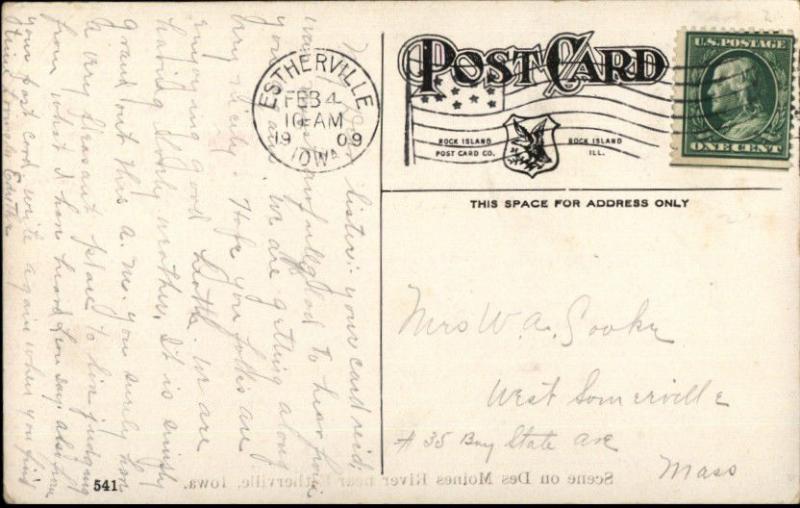 My Dear Sister: your card recd.
was more than glad to hear from
you and we are getting along
very nicely. Hope you folks are
enjoying good health. we are
having lovely weather, It is simply
grand out this a.m. you surely have
a very pleasant place to live judging
from what I have heard Leon say. also from
your post card. write again when you find
time
ESTHERVILLE
FEB 4
10 AM
1909
IOWA
POST CARD
ROCK ISLAND
POST CARD CO.
ROCK ISLAND
ILL.
U.S. POSTAGE
ONE CENT
THIS SPACE FOR ADDRESS ONLY
Mrs W. A.
West Somerville
# 35 Bay State ave
Mass
541
Scene on Des Moines River near Estherville, Iowa.